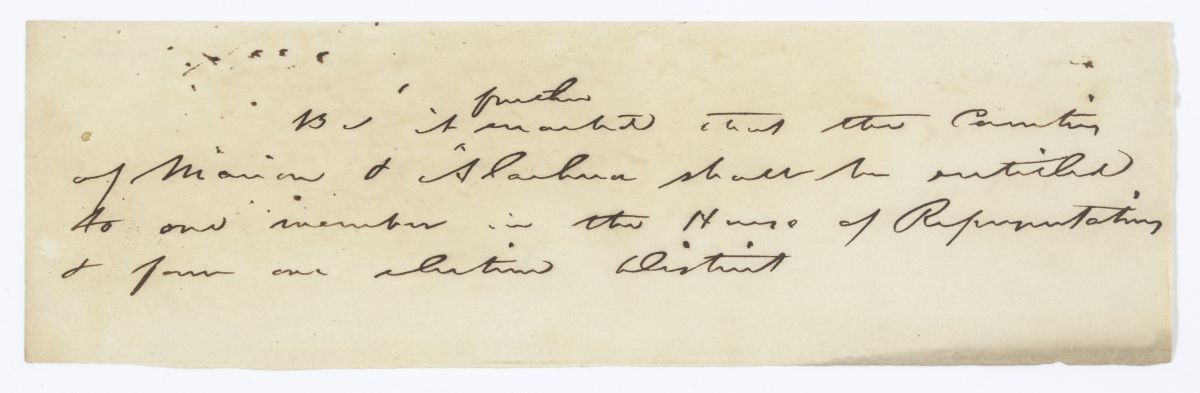 further
Be it enacted that the Counties
of Marion & Alachua shall be entitled
to one member in the House of Representatives
& form one election District